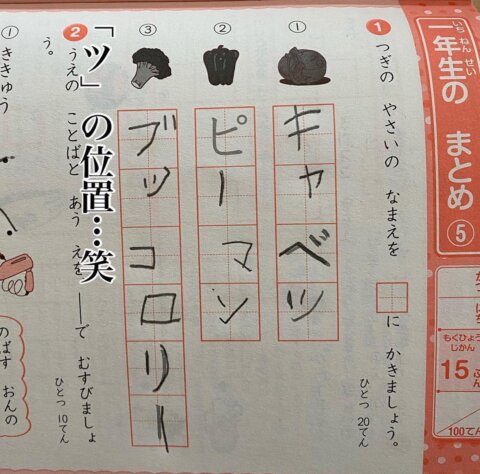 一年生の まとめ ⑤
いちねんせい
もくひょう
じかん
15ふん
100てん
1 つぎの やさいの なまえを □に かきましょう。
ひとつ 20てん
①
キャベツ
②
ピーマン
③
ブッコロリー
「ツ」の位置…笑
2 うえの ことばと あう えを ──で むすびましょう。
ひとつ 10てん
①
ききゅう
のばす おんの